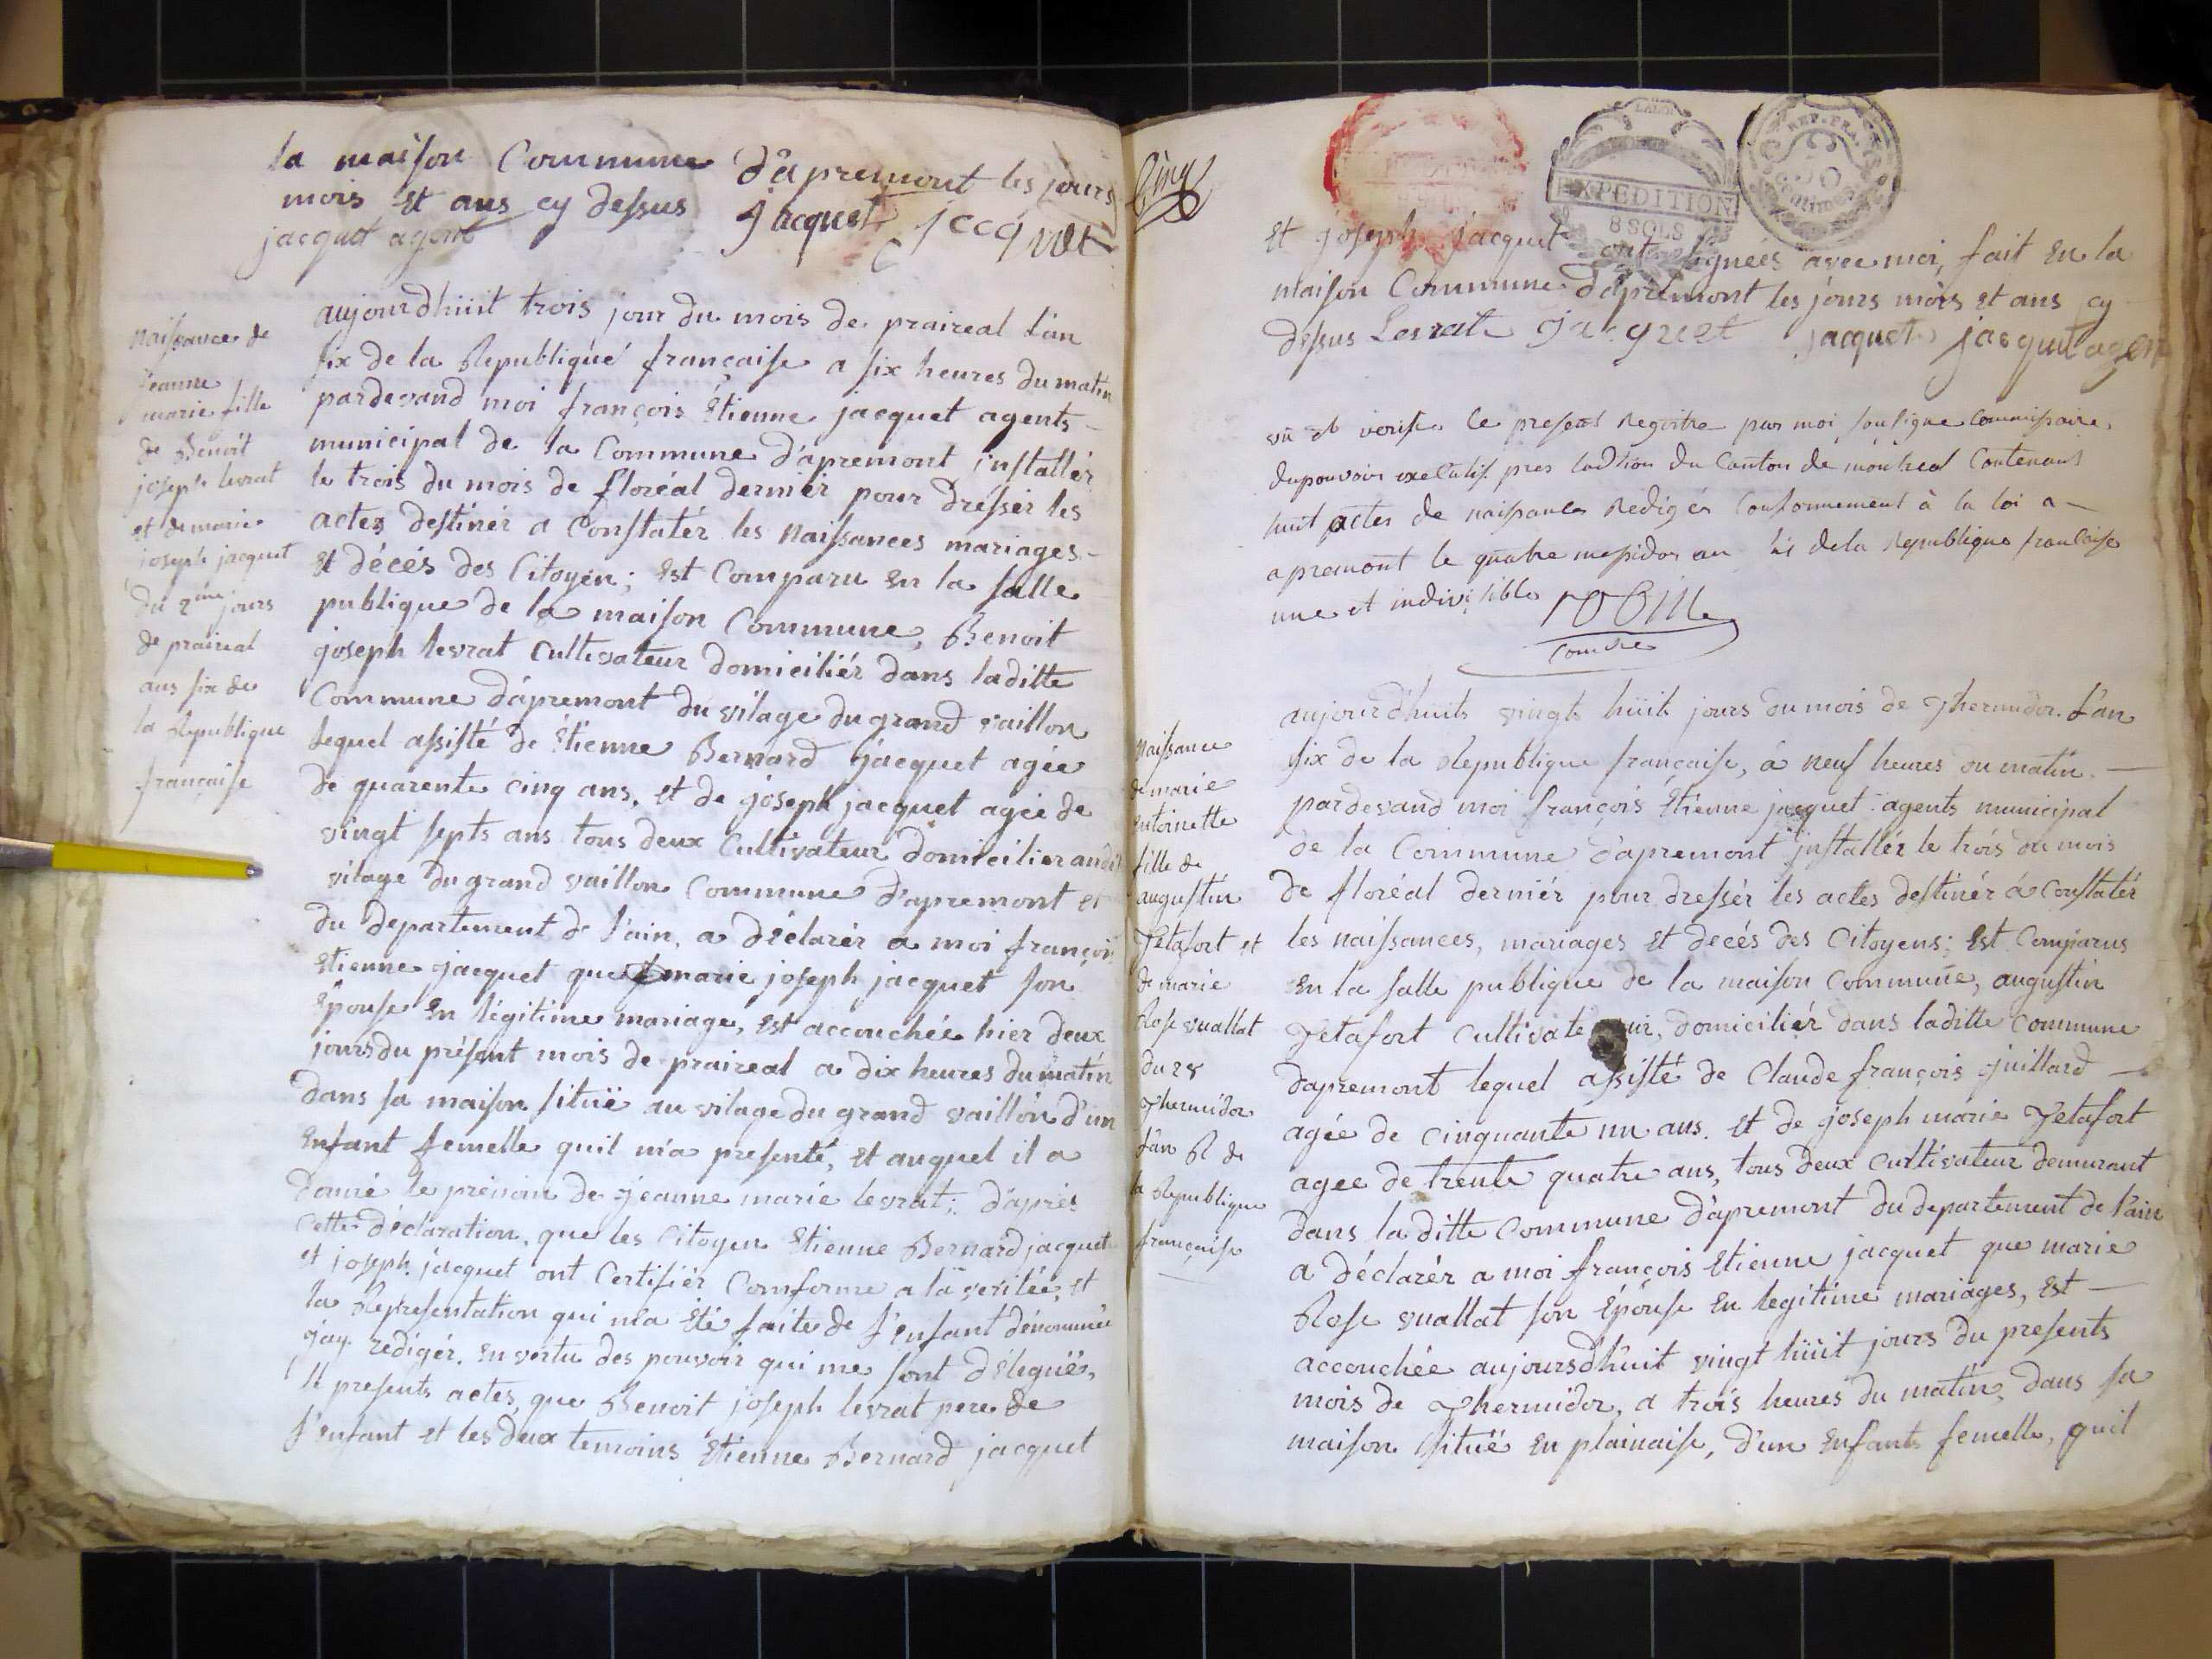 la maison Commune d'apremont les jours
mois Et ans cy dessus Jacquet jacquet
jacquet agent
Naissance de
jeanne
marie fille
de Benoit
joseph levrat
et de marie
joseph jacquet
du 2ime jours
de praireal
ans six de
la Republique
française
aujourdhüit trois jour du mois de praireal l'an
six de la Republique française a six heures du matin
pardevand moi françois Étienne jacquet agents
municipal de la Commune d'apremont installér
le trois du mois de floréal dernier pour dressér les
actes destinér a Constatér les Naissances mariages
Et décés des Citoyen; Est Comparu En la salle
publique de la maison Commune, Benoit
joseph levrat Cultivateur domiciliér dans laditte
Commune d'apremont du vilage du grand vaillon
lequel assisté de Étienne Bernard jacquet agée
de quarente cinq ans, et de joseph jacquet agée de
vingt septs ans tous deux Cultivateur domicilier audit
vilage du grand vaillon Commune d'apremont et
du departement de l'ain, a déclarér a moi françois
Etienne jacquet que marie joseph jacquet son
Épouse En légitime mariage, Est accouchée hier deux
jours du présent mois de praireal a dix heures du matin
dans sa maison situë au vilage du grand vaillon d'un
Enfant femelle quil m'a presenté, Et auquel il a
donné le prénom de jeanne marie levrat; d'aprés
cette déclaration, que les Citoyen Etienne Bernard jacquet
et joseph jacquet ont Certifiér Comforme a la veritée, et
la Representation qui m'a Eté faite de l'enfant dénommée
j'ay redigér, En vertu des pouvoir qui me sont déleguës,
le presents actes, que Benoit joseph levrat pere de
l'enfant et les deux temoins Etienne Bernard jacquet
Cinq
EXPEDITION
8 SOLS
REP. FRA.
50
centimes
Et joseph jacquet ont signeés avec moi, fait En la
maison Commune d'apremont les jours mois et ans cy
dessus Levrat jacquet jacquet jacquet agent
vû et verifié le present Registre par moi soussigné Commissaire
du pouvoir executif pres ladtion du Canton de montreal Contenant
huit actes de naissances Redigés Conformement à la loi a
apremont le quatre messidor an six de la Republique francaise
une et indivisible
Naissance
de marie
entoinette
fille de
augustin
Jetafort et
de marie
Rose vuallat
du 28
Thermidor
l'an R de
la Republique
française
aujourd'huits vingts hüits jours du mois de Thermidor. L'an
six de la Republique française, á neuf heures du matin.
pardevand moi françois Étienne jacquet agents municipal
de la Commune d'apremont installér le trois du mois
de floréal derniér pour dressér les actes destinér á Constatér
les naissances, mariages Et decés des Citoyens; Est Comparus
En la salle publique de la maison Commune, augustin
Jetafort Cultivateur, domiciliér dans laditte Commune
dapremont lequel assisté de Claude françois juillard
agée de Cinquante un ans. Et de joseph marie Jetafort
agee de trente quatre ans, tous deux Cultivateur demurant
dans laditte Commune d'apremont du departement de l'ain
a déclarér a moi françois Etienne jacquet que marie
Rose vuallat son Épouse En legitime mariages, Est
accouchée aujoursdhuit vingt hüit jours du presents
mois de Thermidor, a trois heures du matin, dans sa
maison Situë En plainaise, d'un Enfants femelle, quil